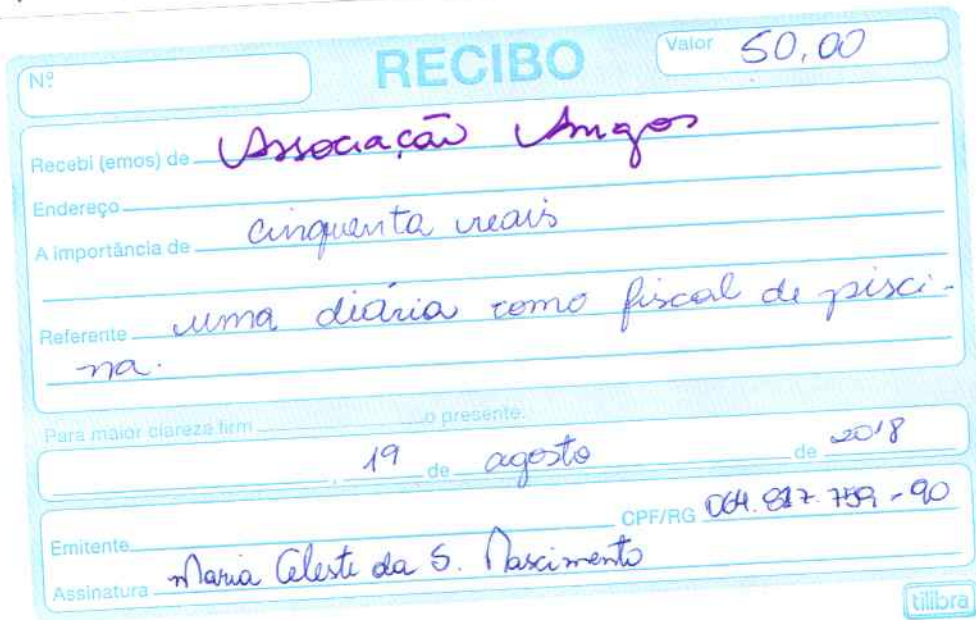 Nº RECIBO Valor 50,00
Recebi (emos) de Associação Amigos
Endereço
A importância de cinquenta reais
Referente uma diária como fiscal de pisci-
na.
Para maior clareza firm o presente.
, 19 de agosto de 2018
Emitente CPF/RG 064.817.759-90
Assinatura Maria Celeste da S. Nascimento
tilibra